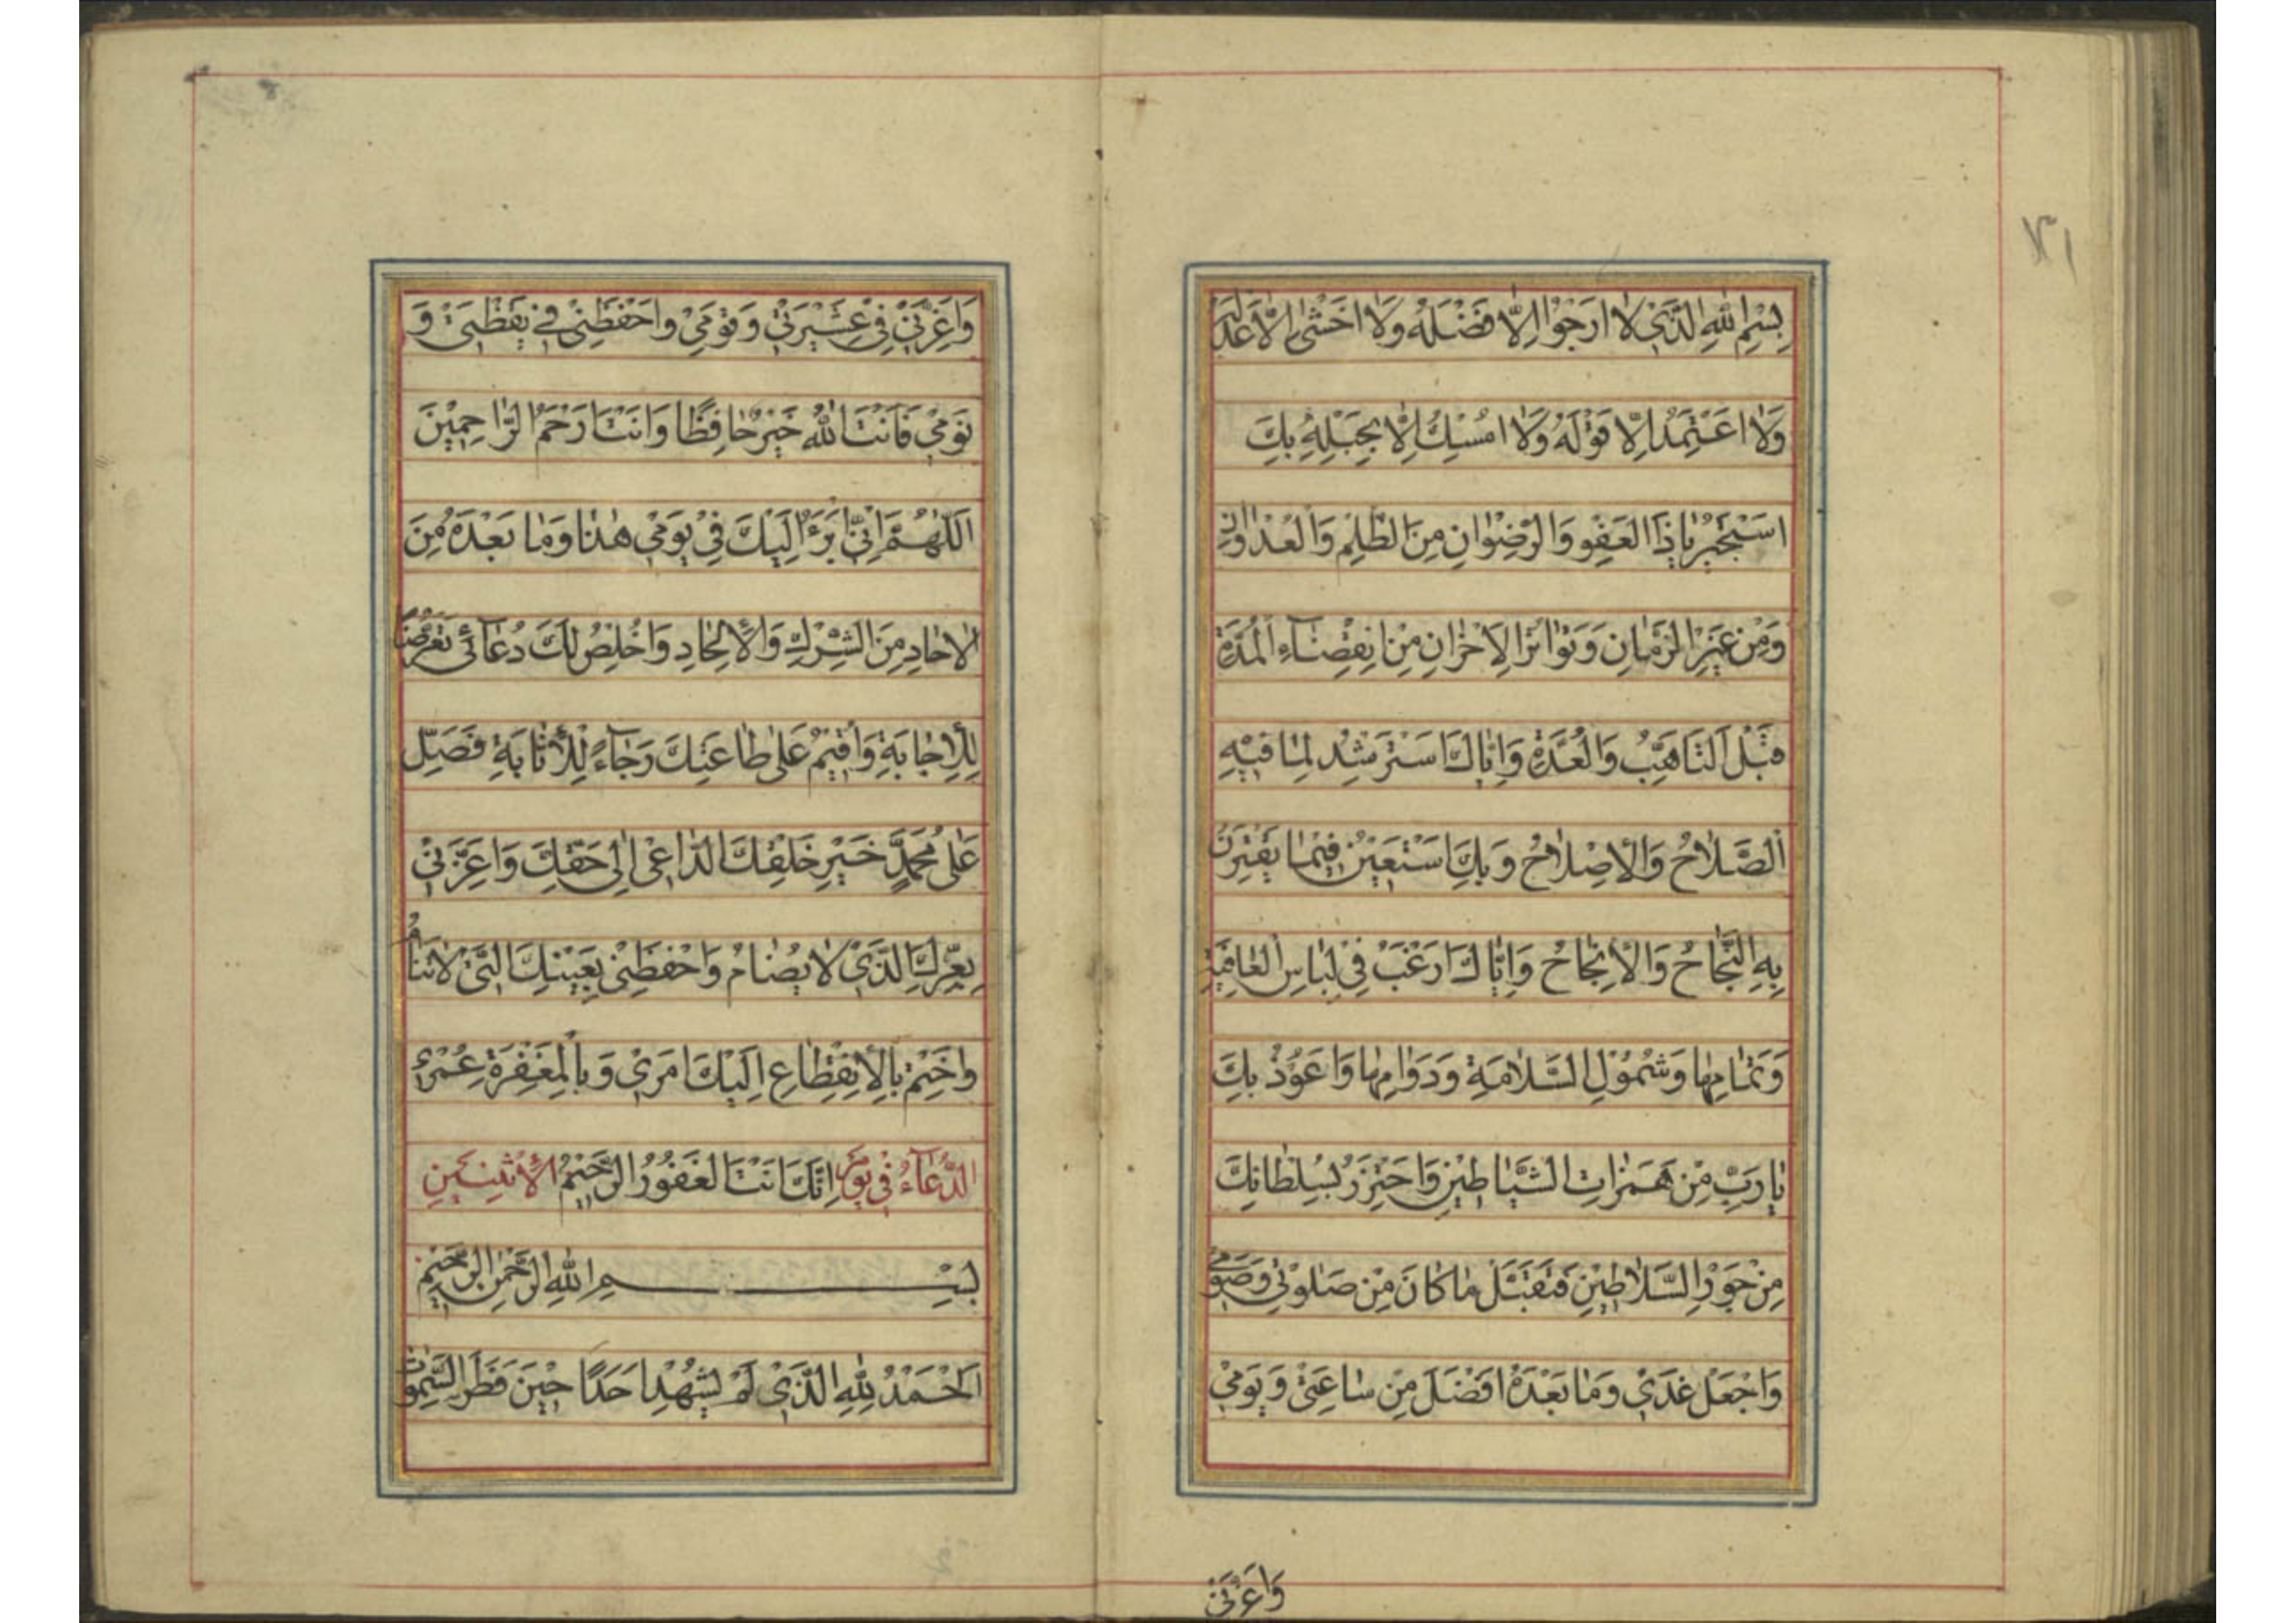 بِسْمِ اللهِ الَّذِي لَا اَرْجُوا اِلَّا فَضْلَهُ وَلَا اَخْشٰى اِلَّا عَدْلَهُ
وَلَا اَعْتَمِدُ اِلَّا قَوْلَهُ وَلَا اُمْسِكُ اِلَّا بِحَبْلِهِ بِكَ
اَسْتَجِيرُ يَا ذَا الْعَفْوِ وَالرِّضْوَانِ مِنَ الظُّلْمِ وَالْعُدْوَانِ
وَمِنْ غَيْرِ الزَّمَانِ وَتَوَاتُرِ الْاَحْزَانِ مِنْ انْقِضَاءِ الْمُدَّةِ
قَبْلَ التَّاَهُّبِ وَالْعُدَّةِ وَاِيَّاكَ اَسْتَرْشِدُ لِمَا فِيْهِ
الصَّلَاحُ وَالْاِصْلَاحُ وَبِكَ اَسْتَعِيْنُ فِيْمَا يَقْتَرِنُ
بِهِ النَّجَاحُ وَالْاِنْجَاحُ وَاِيَّاكَ اَرْغَبُ فِي لِبَاسِ الْعَافِيَةِ
وَتَمَامِهَا وَشُمُوْلِ السَّلَامَةِ وَدَوَامِهَا وَاَعُوْذُ بِكَ
يَا رَبِّ مِنْ هَمَزَاتِ الشَّيَاطِيْنِ وَاَحْتَرِزُ بِسُلْطَانِكَ
مِنْ جَوْرِ السَّلَاطِيْنِ فَتَقَبَّلْ مَا كَانَ مِنْ صَلٰوتِي وَصَوْمِي
وَاجْعَلْ غَدِيْ وَمَا بَعْدَهُ اَفْضَلَ مِنْ سَاعَتِيْ وَيَوْمِيْ
وَاَعِزَّنِيْ
وَاَعِزَّنِيْ فِيْ عَشِيْرَتِيْ وَقَوْمِيْ وَاحْفَظْنِيْ فِيْ يَقْظَتِيْ وَ
نَوْمِيْ فَاَنْتَ اللهُ خَيْرٌ حَافِظًا وَاَنْتَ اَرْحَمُ الرَّاحِمِيْنَ
اَللّٰهُمَّ اِنِّيْ اَبْرَءُ اِلَيْكَ فِيْ يَوْمِيْ هٰذَا وَمَا بَعْدَهُ مِنَ
الْاٰحَادِ مِنَ الشِّرْكِ وَالْاِلْحَادِ وَاُخْلِصُ لَكَ دُعَائِيْ تَعَرُّضًا
لِلْاِجَابَةِ وَاُقِيْمُ عَلٰى طَاعَتِكَ رَجَاءً لِلْاِثَابَةِ فَصَلِّ
عَلٰى مُحَمَّدٍ خَيْرِ خَلْقِكَ الدَّاعِيْ اِلٰى حَقِّكَ وَاَعِزَّنِيْ
بِعِزِّكَ الَّذِيْ لَا يُضَامُ وَاحْفَظْنِيْ بِعَيْنِكَ الَّتِيْ لَا تَنَامُ
وَاخْتِمْ بِالْاِنْقِطَاعِ اِلَيْكَ اَمْرِيْ وَبِالْمَغْفِرَةِ عُمْرِيْ
الدُّعَاءُ فِي يَوْمِ اِنَّكَ اَنْتَ الْغَفُوْرُ الرَّحِيْمُ الْاِثْنَيْنِ
بِسْمِ اللهِ الرَّحْمٰنِ الرَّحِيْمِ
اَلْحَمْدُ لِلّٰهِ الَّذِيْ لَمْ يُشْهِدْ اَحَدًا حِيْنَ فَطَرَ السَّمٰوَاتِ